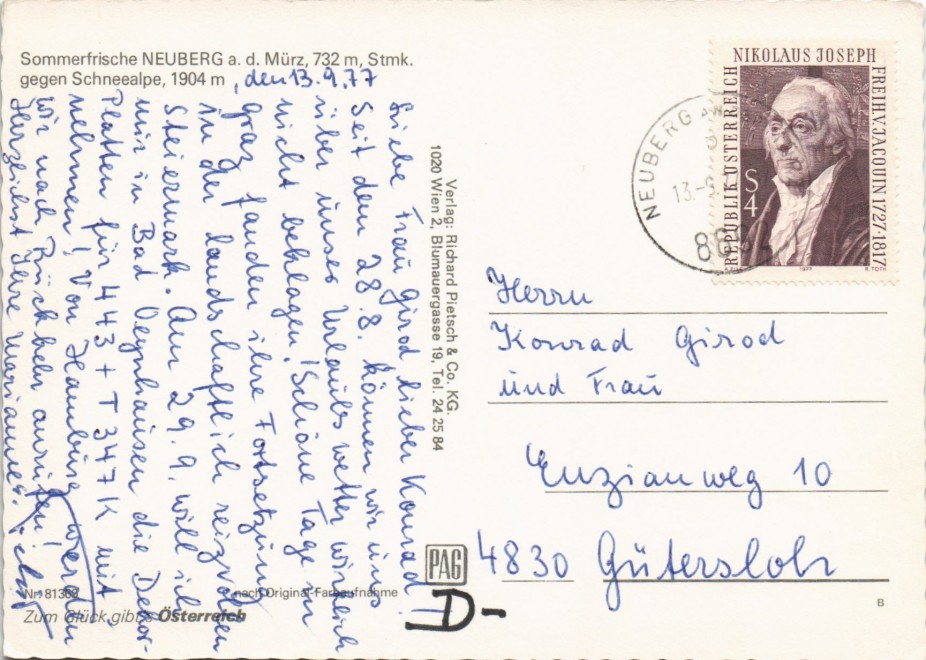 Sommerfrische NEUBERG a. d. Mürz, 732 m, Stmk.
gegen Schneealpe, 1904 m
, den 13.9.77
Liebe Frau Girod, lieber Konrad!
Seit den 28.8. können wir uns
über unser Urlaubswetter wirklich
nicht beklagen! Schöne Tage in
Graz fanden ihre Fortsetzung
in der landschaftlich reizvollen
Steiermark. Am 29.9. will ich
mir in Bad Oeynhausen die Dekor-
Platten für 443 + T 347K mit
nehmen! Von Hamburg werden
wir nach Rückkehr anrufen!
Herzlichst Ihre Marianne
Verlag: Richard Pietsch & Co. KG.
1020 Wien 2, Blumauergasse 19, Tel. 24 25 84
Nr. 81368
nach Original-Farbaufnahme
Zum Glück gibt's Österreich
PAG
D-
NIKOLAUS JOSEPH
FREIH.V.JACQUIN 1727-1817
REPUBLIK ÖSTERREICH
S 4
1977
R. TOTH
NEUBERG AN
13.-9.
Herrn
Konrad Girod
und Frau
Enzianweg 10
4830 Gütersloh
B